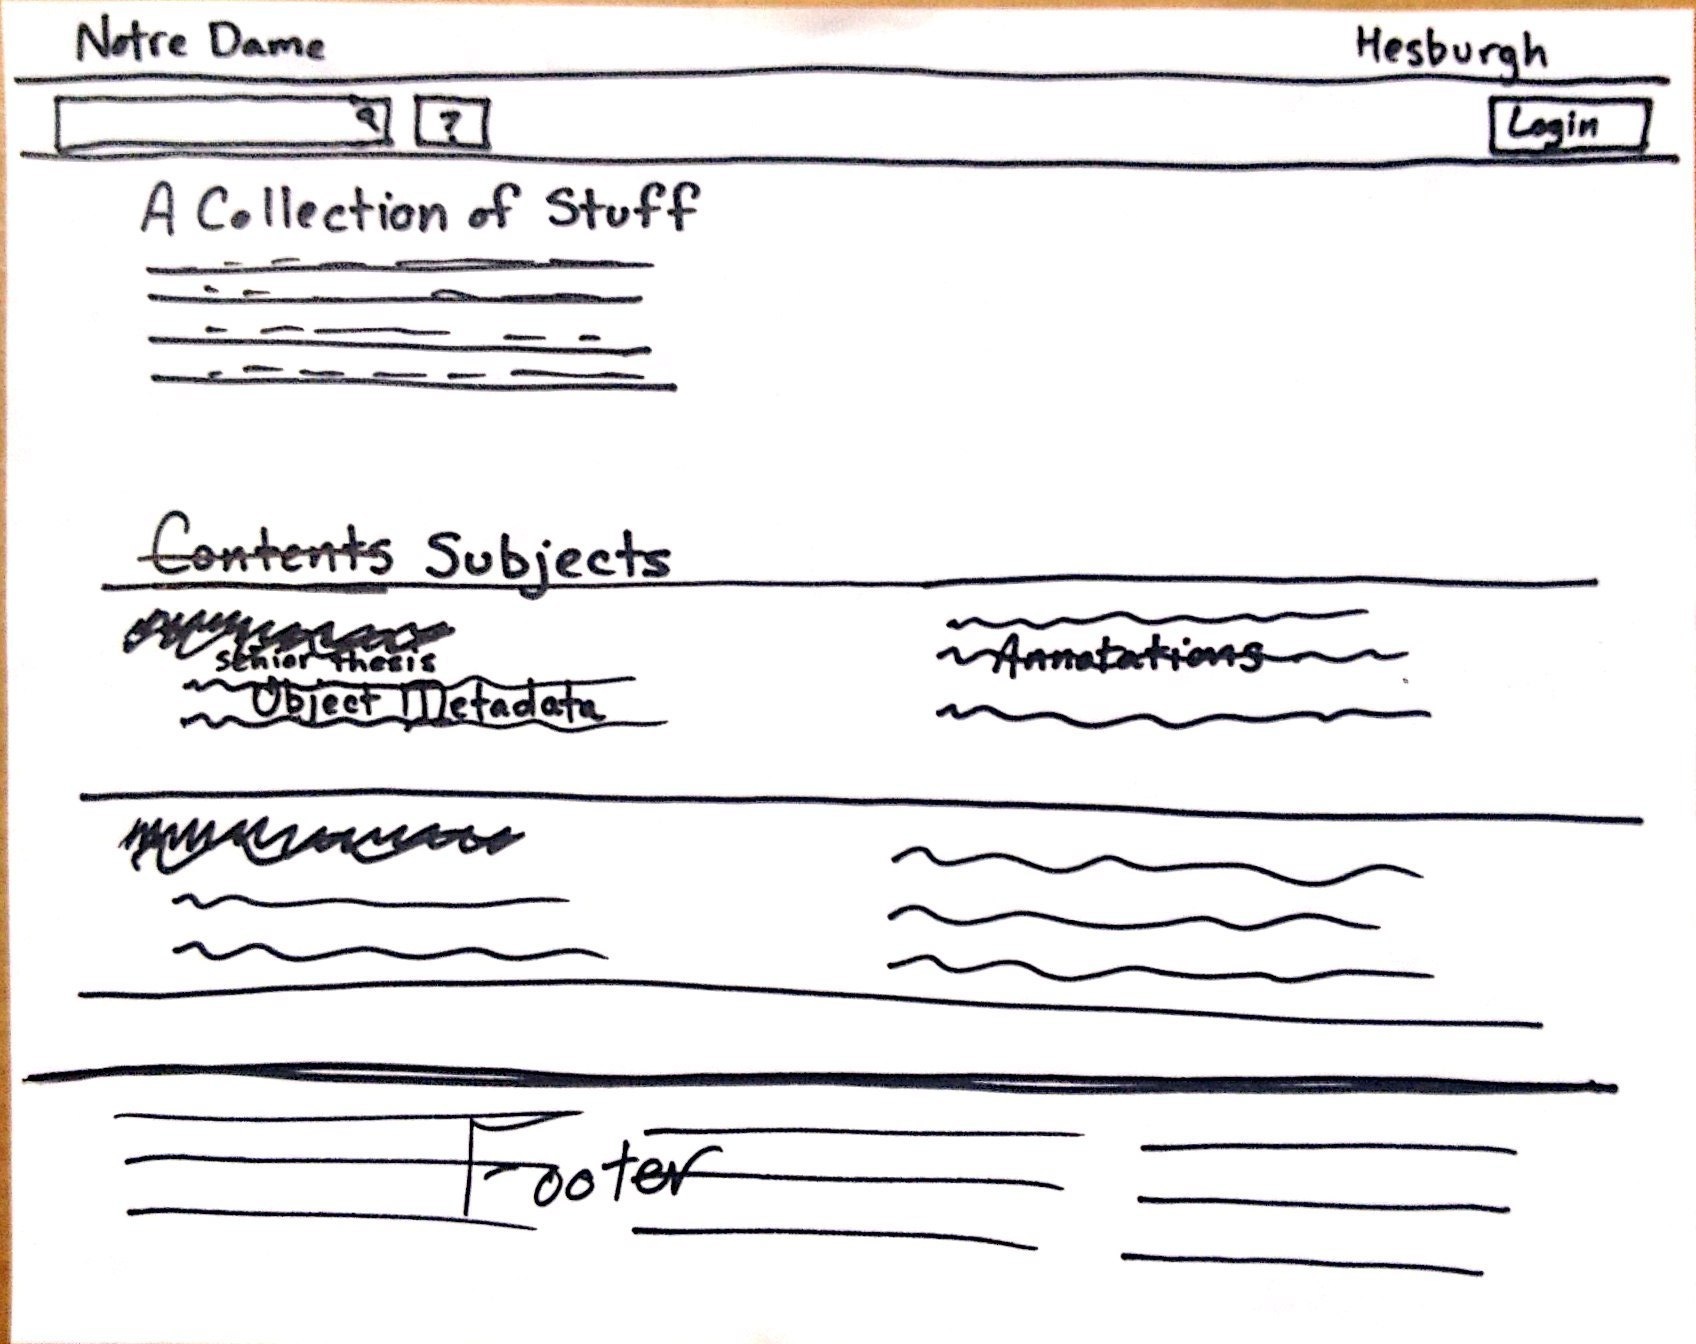 Notre Dame
Hesburgh
?
Login
A Collection of Stuff
Contents Subjects
senior thesis
Object Metadata
Annotations
Footer